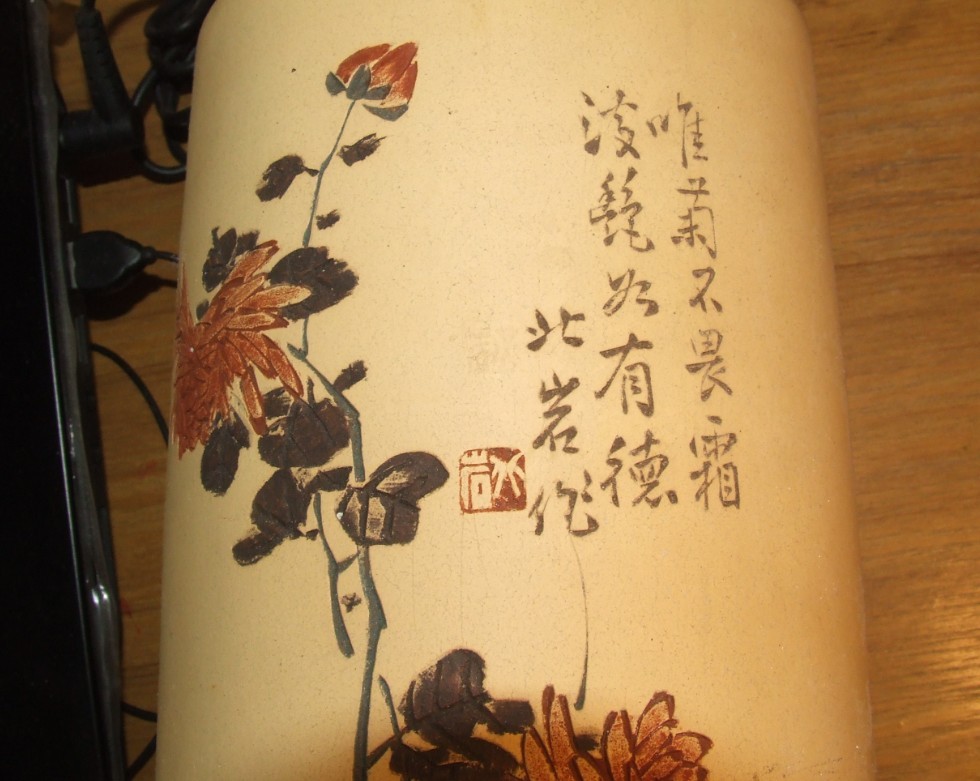 唯菊不畏霜
如有德
北岩作
岩